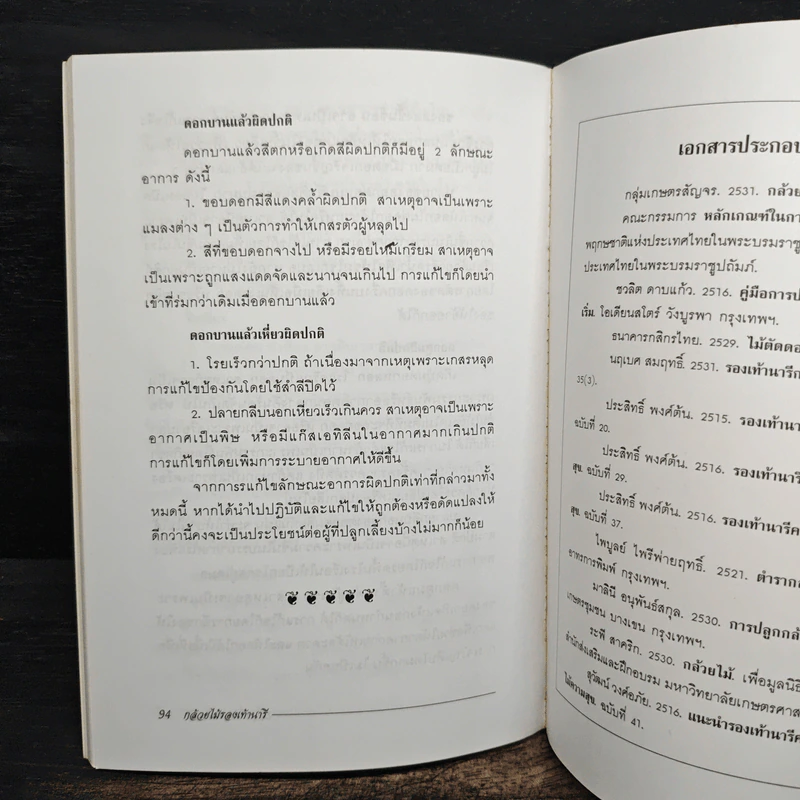 ดอกบานแล้วผิดปกติ
ดอกบานแล้วสีตกหรือเกิดสีผิดปกติก็มีอยู่ 2 ลักษณะ
อาการ ดังนี้
1. ขอบดอกมีสีแดงคล้ำผิดปกติ สาเหตุอาจเป็นเพราะ
แมลงต่าง ๆ เป็นตัวการทำให้เกสรตัวผู้หลุดไป
2. สีที่ขอบดอกจางไป หรือมีรอยไหม้เกรียม สาเหตุอาจ
เป็นเพราะถูกแสงแดดจัดและนานจนเกินไป การแก้ไขก็โดยนำ
เข้าที่ร่มกว่าเดิมเมื่อดอกบานแล้ว
ดอกบานแล้วเหี่ยวผิดปกติ
1. โรยเร็วกว่าปกติ ถ้าเนื่องมาจากเหตุเพราะเกสรหลุด
การแก้ไขป้องกันโดยใช้สำลีปิดไว้
2. ปลายกลีบนอกเหี่ยวเร็วเกินควร สาเหตุอาจเป็นเพราะ
อากาศเป็นพิษ หรือมีแก๊สเอทิลีนในอากาศมากเกินปกติ
การแก้ไขก็โดยเพิ่มการระบายอากาศให้ดีขึ้น
จากการแก้ไขลักษณะอาการผิดปกติเท่าที่กล่าวมาทั้ง
หมดนี้ หากได้นำไปปฏิบัติและแก้ไขให้ถูกต้องหรือดัดแปลงให้
ดีกว่านี้คงจะเป็นประโยชน์ต่อผู้ที่ปลูกเลี้ยงบ้างไม่มากก็น้อย
94 กล้วยไม้รองเท้านารี
เอกสารประกอบ
กลุ่มเกษตรสัญจร. 2531. กล้วย
คณะกรรมการ หลักเกณฑ์ในกา
พฤกษชาติแห่งประเทศไทยในพระบรมราชู
ประเทศไทยในพระบรมราชูปถัมภ์.
ชวลิต ดาบแก้ว. 2516. คู่มือการป
เริ่ม. โอเดียนสโตร์ วังบูรพา กรุงเทพฯ.
ธนาคารกสิกรไทย. 2529. ไม้ตัดดอ
นฤเบศ สมฤทธิ์. 2531. รองเท้านารีก
35(3).
ประสิทธิ์ พงศ์ต้น. 2515. รองเท้านา
ฉบับที่ 20.
ประสิทธิ์ พงศ์ต้น. 2516. รองเท้านารี
สุข. ฉบับที่ 29.
ประสิทธิ์ พงศ์ต้น. 2516. รองเท้านารีค
สุข. ฉบับที่ 37.
ไพบูลย์ ไพรีพ่ายฤทธิ์. 2521. ตำราก
อาทรการพิมพ์ กรุงเทพฯ.
มาลินี อนุพันธ์สกุล. 2530. การปลูกกล้
เกษตรชุมชน บางเขน กรุงเทพฯ.
ระพี สาคริก. 2530. กล้วยไม้. เพื่อมูลนิธิ
สำนักส่งเสริมและฝึกอบรม มหาวิทยาลัยเกษตรศาส
สุวัฒน์ วงศ์อภัย. 2516. แนะนำรองเท้านารีค
ไม้ความสุข. ฉบับที่ 41.